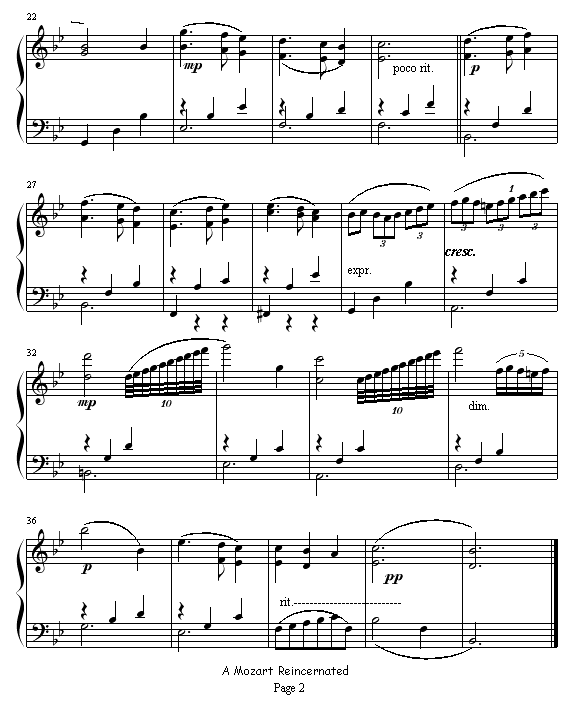 22
mp
poco rit.
p
27
3
3
3
1
3
expr.
cresc.
32
mp
10
10
5
dim.
36
p
pp
rit.
A Mozart Reincernated
Page 2